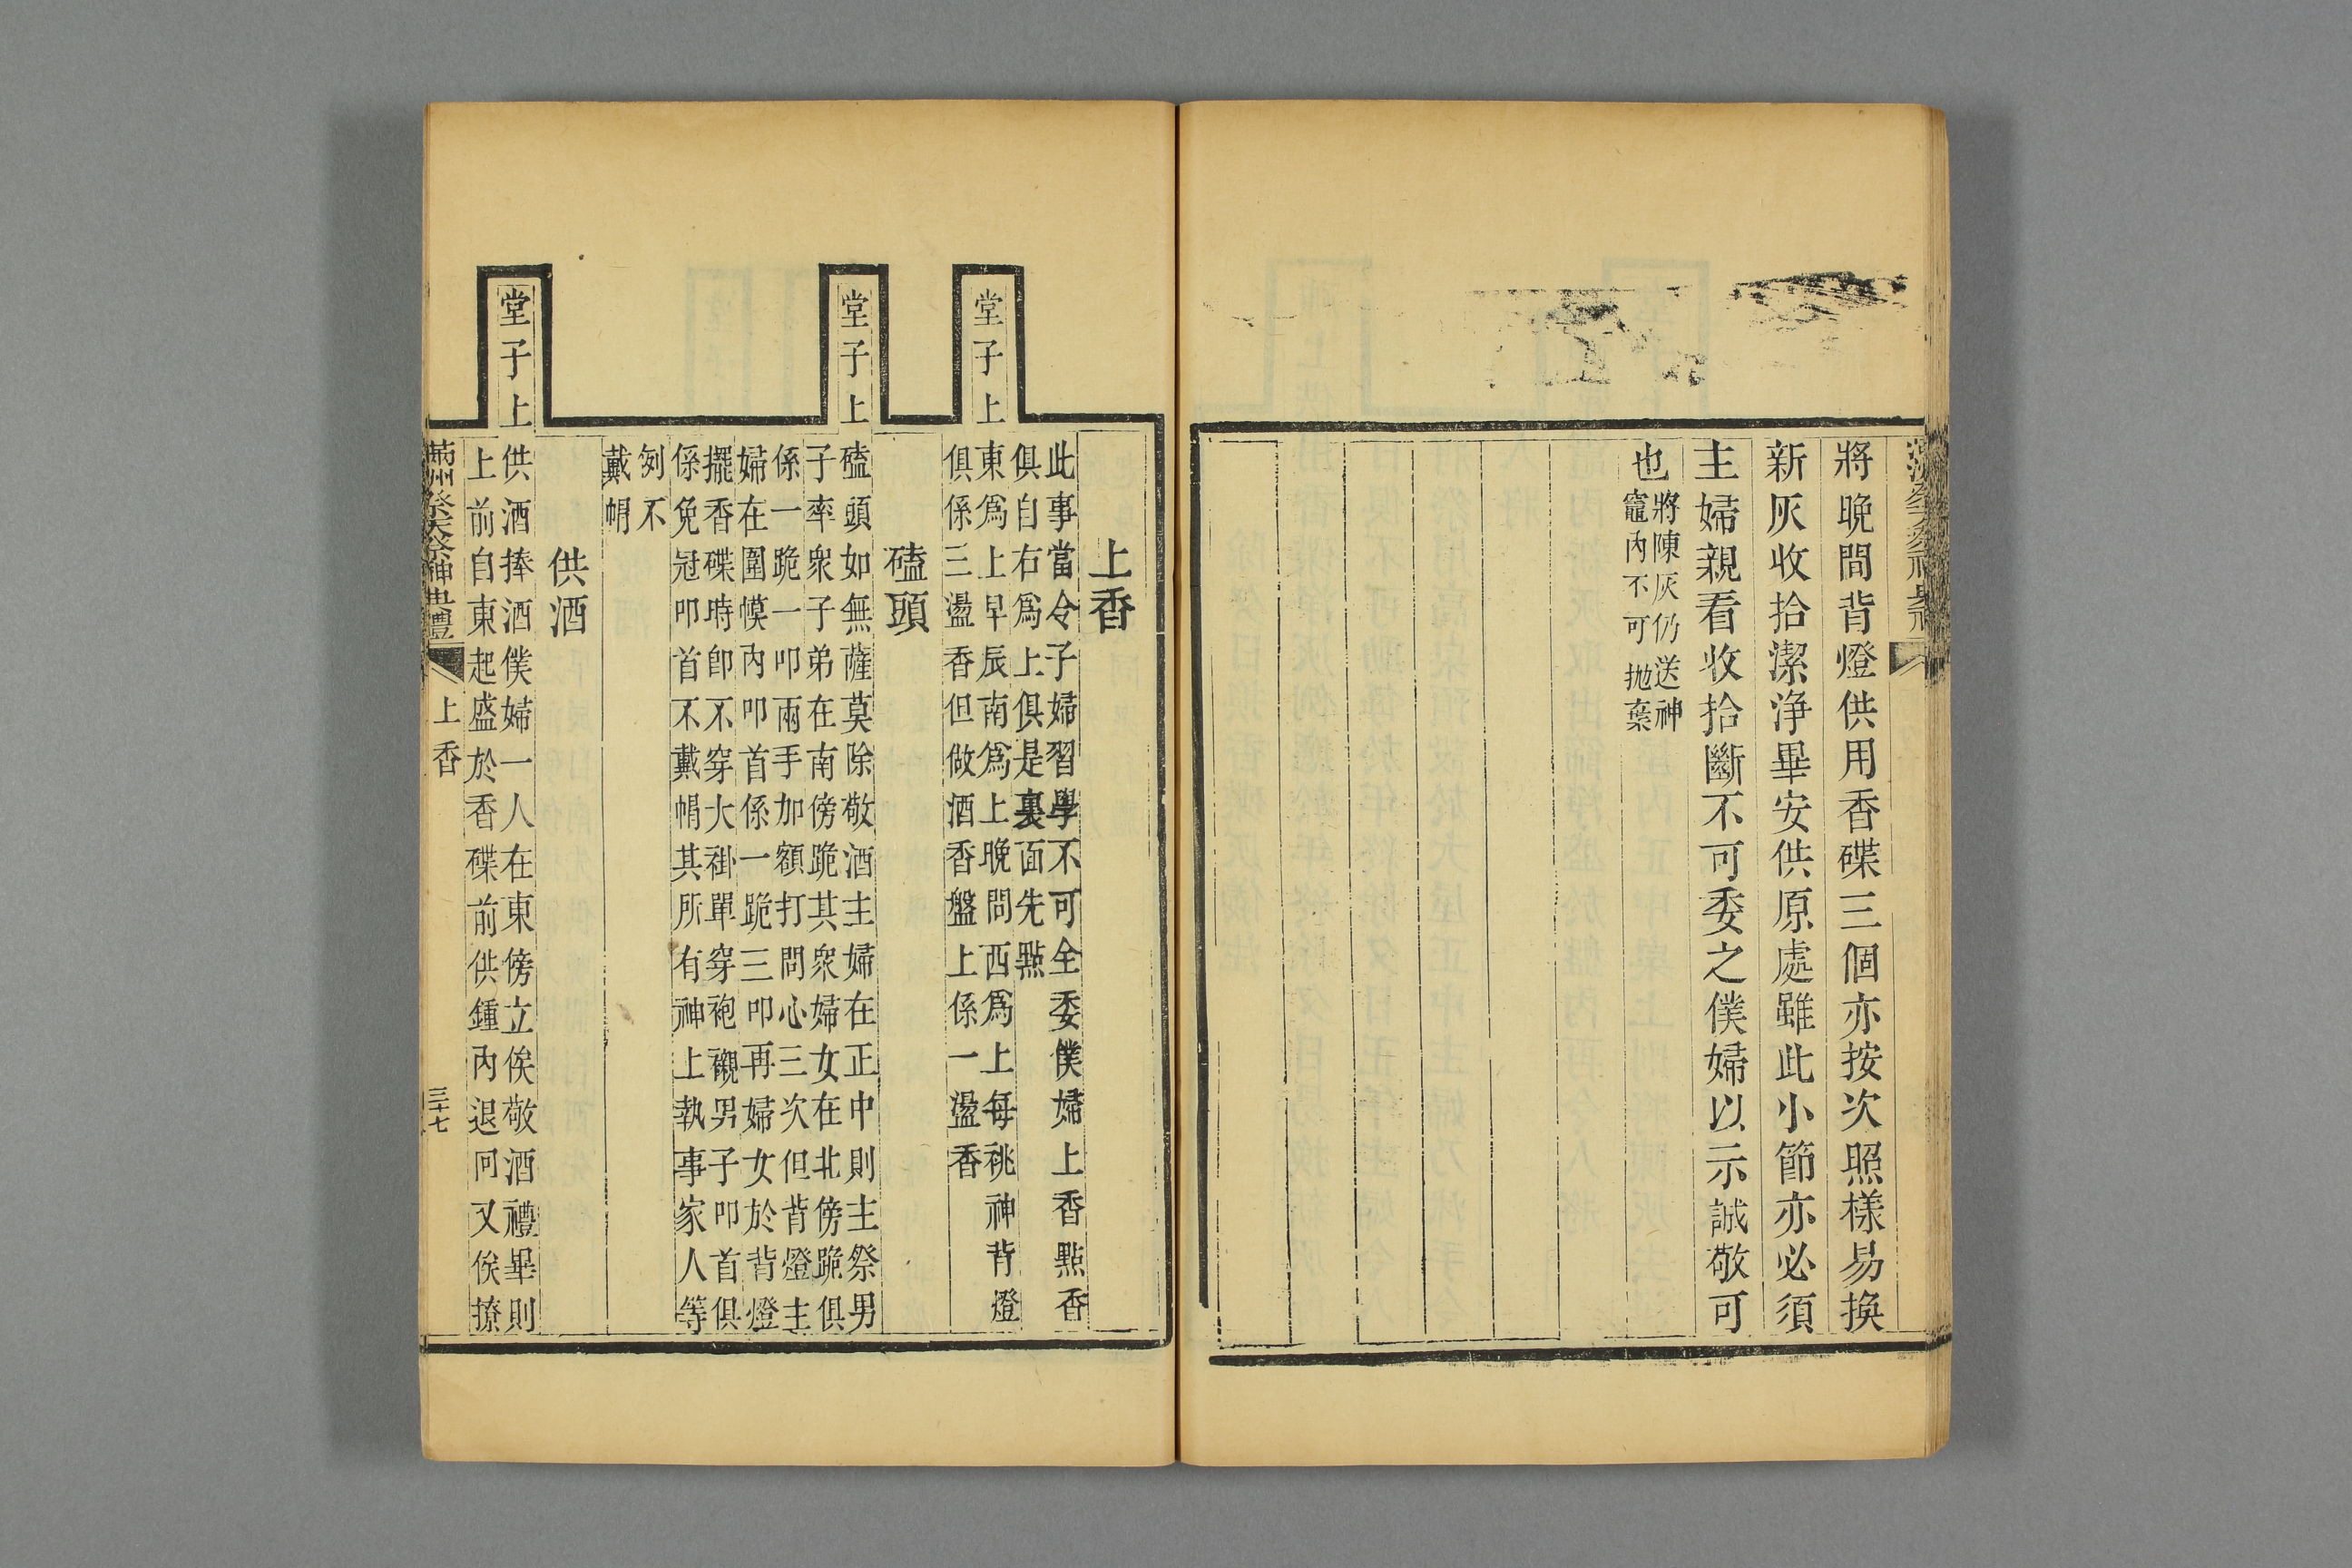 將晚間背燈供用香碟三個亦按次照樣易換
新灰收拾潔淨畢安供原處雖此小節亦必須
主婦親看收拾斷不可委之僕婦以示誠敬可
也
將陳灰仍送神
竈內不可抛棄
上香
此事當令子婦習學不可全委僕婦上香點香
俱自右爲上俱是裏面先點
堂子上
東爲上早辰南爲上晚間西爲上每祧神背燈
俱係三盪香但做酒香盤上係一盪香
磕頭
堂子上
磕頭如無薩莫除敬酒主婦在正中則主祭男
子率衆子弟在南傍跪其衆婦女在北傍跪俱
係一跪一叩兩手加額打問心三次但背燈主
婦在圍幙內叩首係一跪三叩再婦女於背燈
擺香碟時卽不穿大褂單穿袍襯男子叩首俱
係免冠叩首不戴帽其所有神上執事家人等
例不
戴帽
供酒
堂子上
供酒捧酒僕婦一人在東傍立俟敬酒禮畢則
上前自東起盛於香碟前供鍾內退回又俟撩
滿洲祭天祭神典禮
上香
三十七